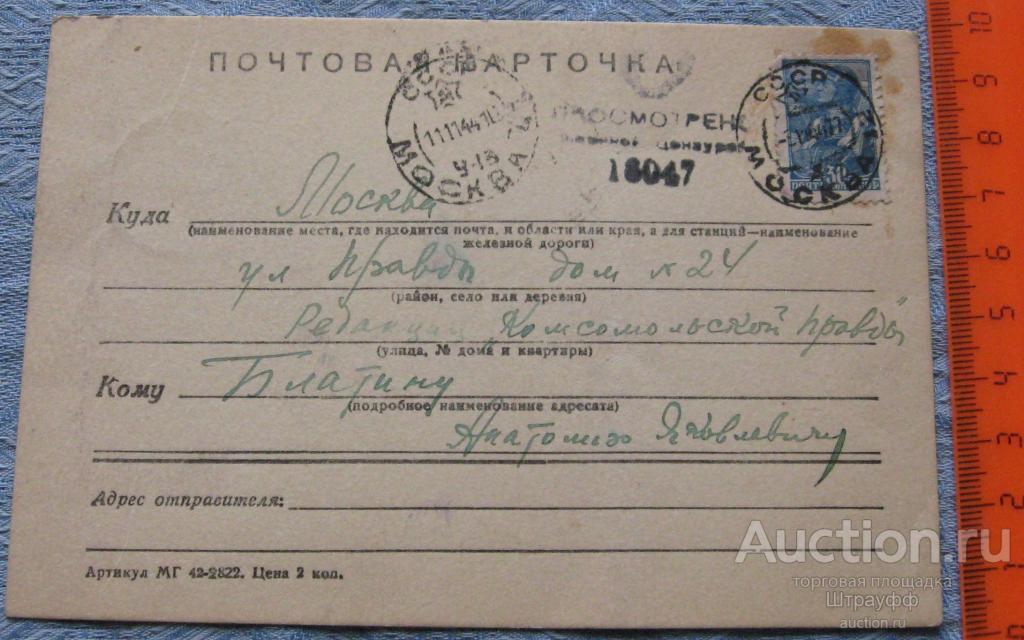 ПОЧТОВАЯ КАРТОЧКА
СССР
МОСКВА
9-13
ПРОСМОТРЕНО
Военной Цензурой
18047
СССР
МОСКВА
30
Куда Москва
(наименование места, где находится почта, и области или края, а для станций—наименование
железной дороги)
ул Правды дом № 24
(район, село или деревня)
Редакция „Комсомольской правды"
(улица, № дома и квартиры)
Кому Блатину
(подробное наименование адресата)
Анатолию Яковлевичу
Адрес отправителя:
Артикул МГ 42-2822. Цена 2 коп.
10
9
8
7
6
5
4
3
2
1
0
Auction.ru
торговая площадка
Штрауфф
auction.ru